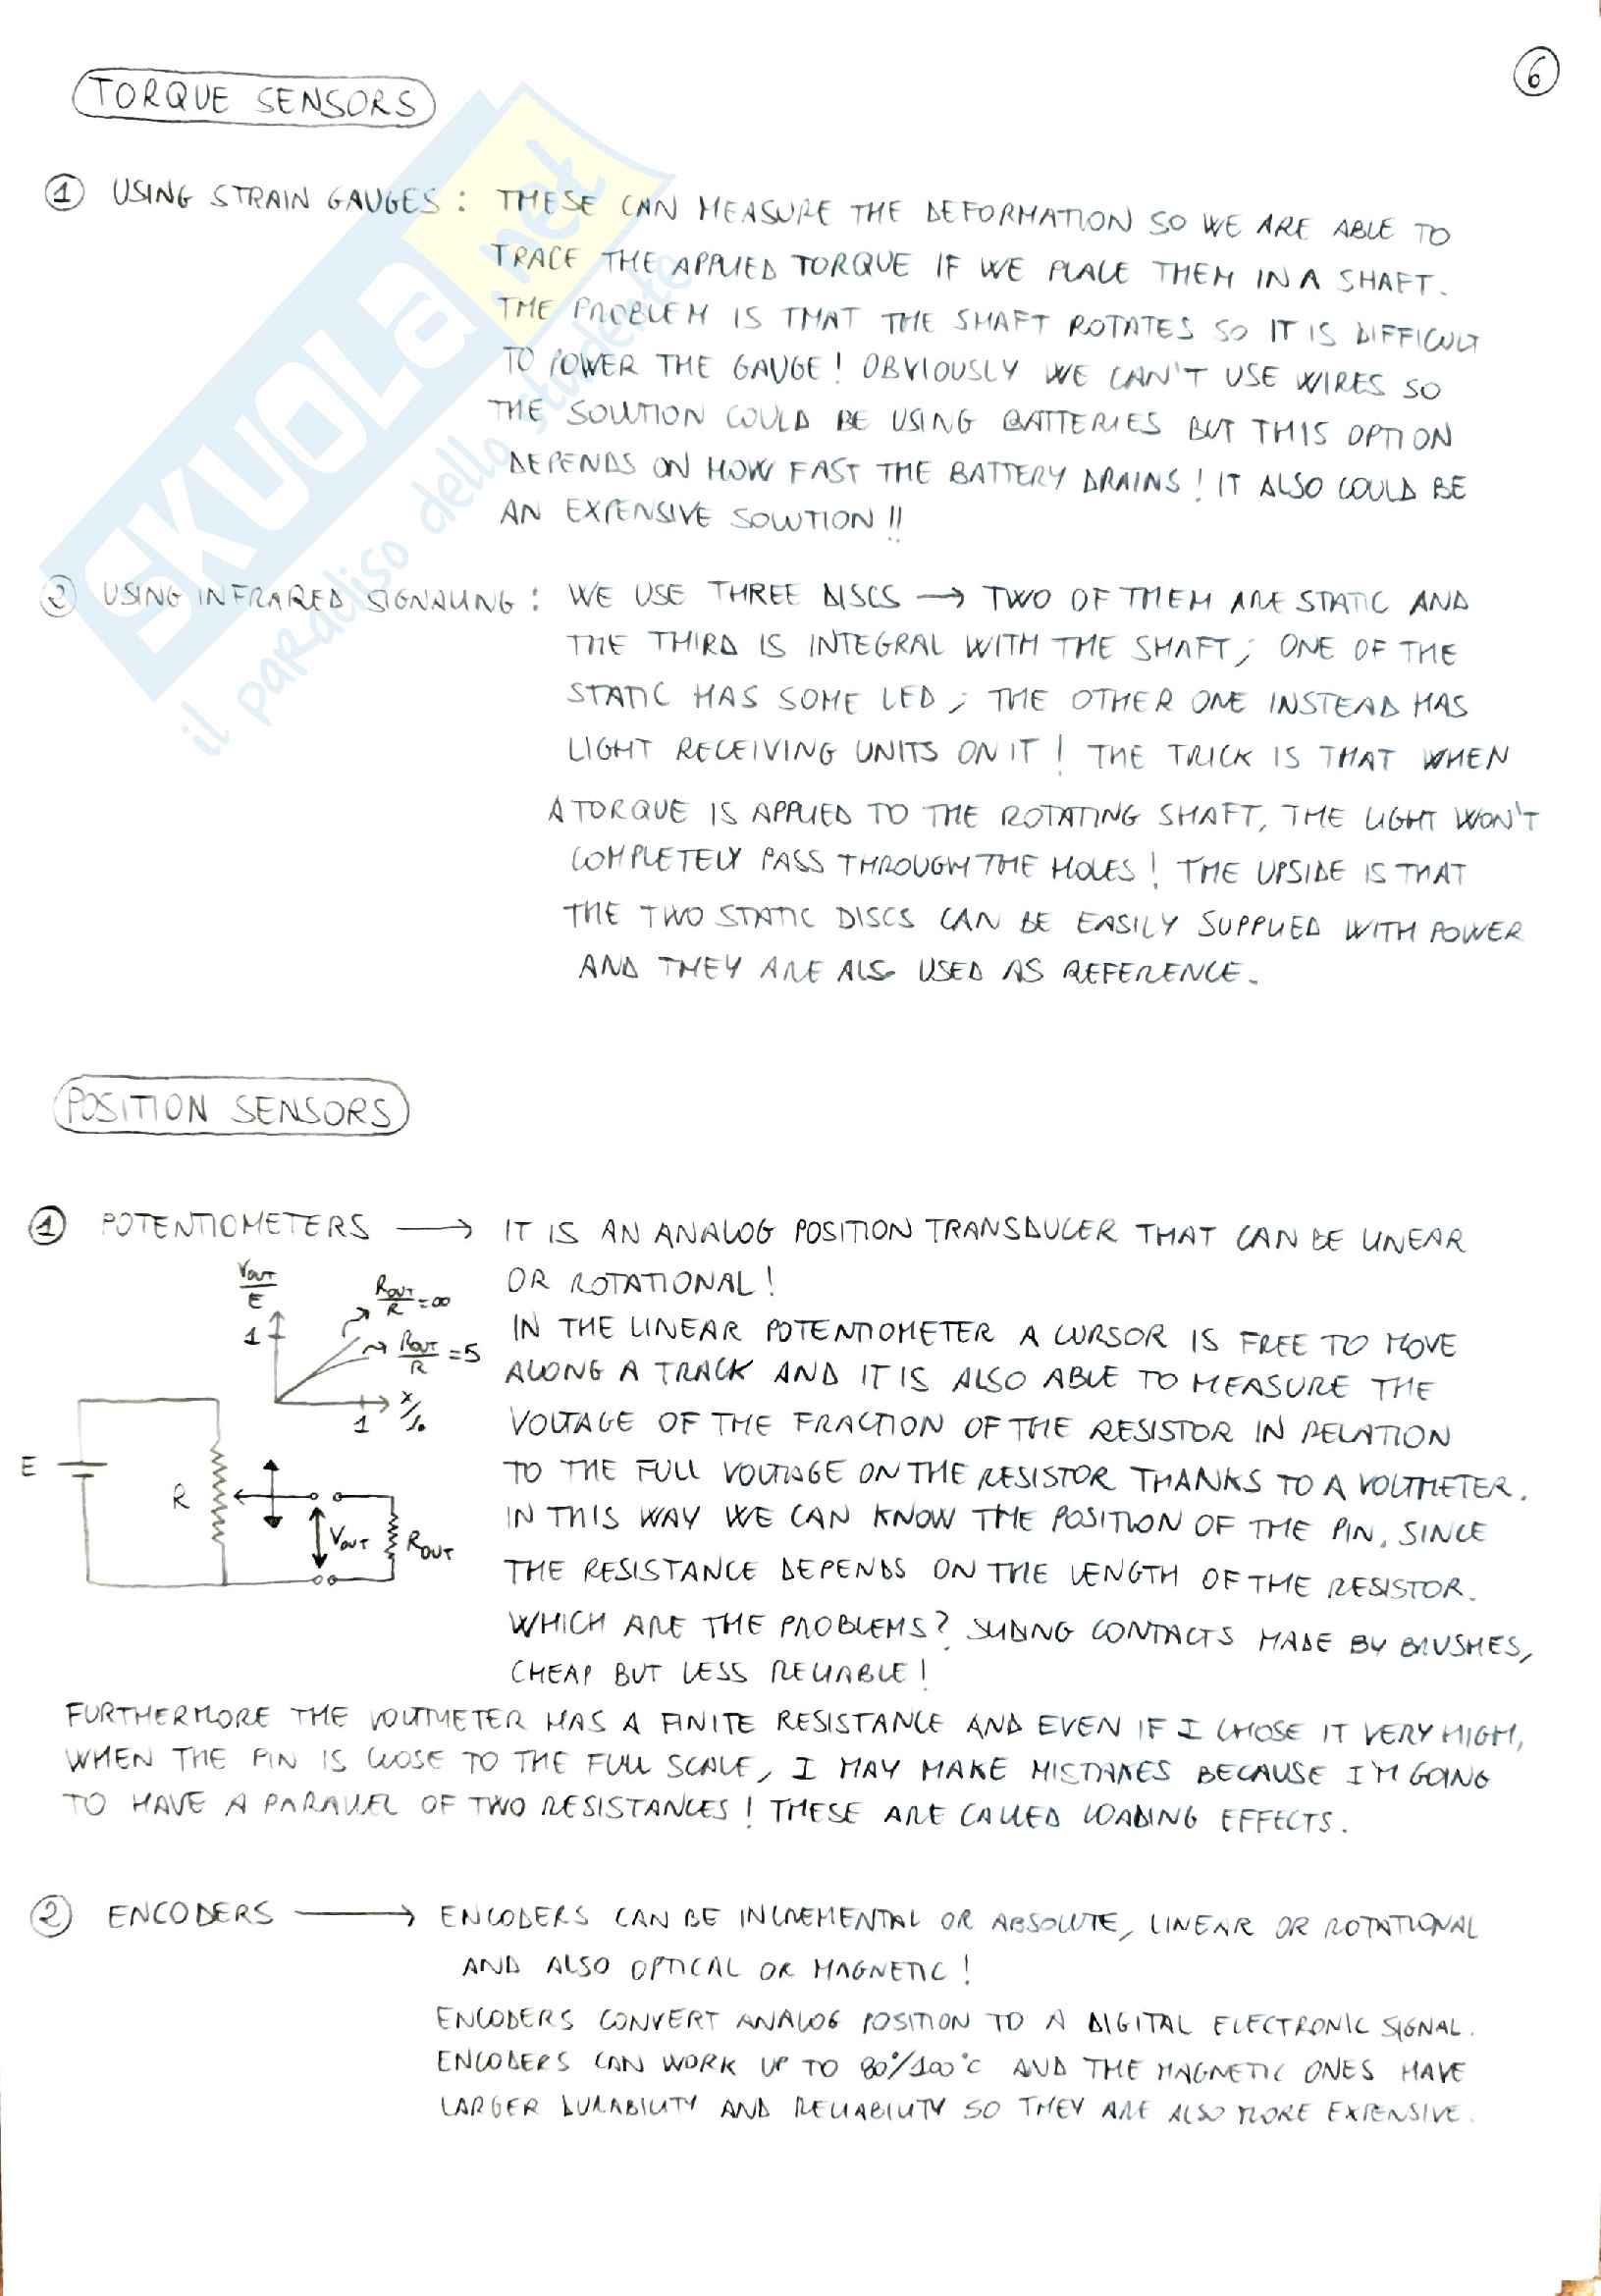 6
TORQUE SENSORS
1 USING STRAIN GAUGES : THESE CAN MEASURE THE DEFORMATION SO WE ARE ABLE TO
TRACE THE APPLIED TORQUE IF WE PLACE THEM IN A SHAFT.
THE PROBLEM IS THAT THE SHAFT ROTATES SO IT IS DIFFICULT
TO POWER THE GAUGE! OBVIOUSLY WE CAN'T USE WIRES SO
THE SOLUTION COULD BE USING BATTERIES BUT THIS OPTION
DEPENDS ON HOW FAST THE BATTERY DRAINS! IT ALSO COULD BE
AN EXPENSIVE SOLUTION!!
2 USING INFRARED SIGNALING : WE USE THREE DISCS → TWO OF THEM ARE STATIC AND
THE THIRD IS INTEGRAL WITH THE SHAFT; ONE OF THE
STATIC HAS SOME LED; THE OTHER ONE INSTEAD HAS
LIGHT RECEIVING UNITS ON IT! THE TRICK IS THAT WHEN
A TORQUE IS APPLIED TO THE ROTATING SHAFT, THE LIGHT WON'T
COMPLETELY PASS THROUGH THE HOLES! THE UPSIDE IS THAT
THE TWO STATIC DISCS CAN BE EASILY SUPPLIED WITH POWER
AND THEY ARE ALSO USED AS REFERENCE.
SKUOLA.net
il paradiso dello studente
POSITION SENSORS
1 POTENTIOMETERS → IT IS AN ANALOG POSITION TRANSDUCER THAT CAN BE LINEAR
OR ROTATIONAL!
IN THE LINEAR POTENTIOMETER A CURSOR IS FREE TO MOVE
ALONG A TRACK AND IT IS ALSO ABLE TO MEASURE THE
VOLTAGE OF THE FRACTION OF THE RESISTOR IN RELATION
TO THE FULL VOLTAGE ON THE RESISTOR THANKS TO A VOLTMETER.
IN THIS WAY WE CAN KNOW THE POSITION OF THE PIN, SINCE
THE RESISTANCE DEPENDS ON THE LENGTH OF THE RESISTOR.
WHICH ARE THE PROBLEMS? SLIDING CONTACTS MADE BY BRUSHES,
CHEAP BUT LESS RELIABLE!
VOUT/E
1
ROUT/R = ∞
ROUT/R = 5
1 x/
E
R
VOUT
ROUT
FURTHERMORE THE VOLTMETER HAS A FINITE RESISTANCE AND EVEN IF I CHOSE IT VERY HIGH,
WHEN THE PIN IS CLOSE TO THE FULL SCALE, I MAY MAKE MISTAKES BECAUSE I'M GOING
TO HAVE A PARALLEL OF TWO RESISTANCES! THESE ARE CALLED LOADING EFFECTS.
2 ENCODERS → ENCODERS CAN BE INCREMENTAL OR ABSOLUTE, LINEAR OR ROTATIONAL
AND ALSO OPTICAL OR MAGNETIC!
ENCODERS CONVERT ANALOG POSITION TO A DIGITAL ELECTRONIC SIGNAL.
ENCODERS CAN WORK UP TO 80°/100°C AND THE MAGNETIC ONES HAVE
LARGER DURABILITY AND RELIABILITY SO THEY ARE ALSO MORE EXPENSIVE.